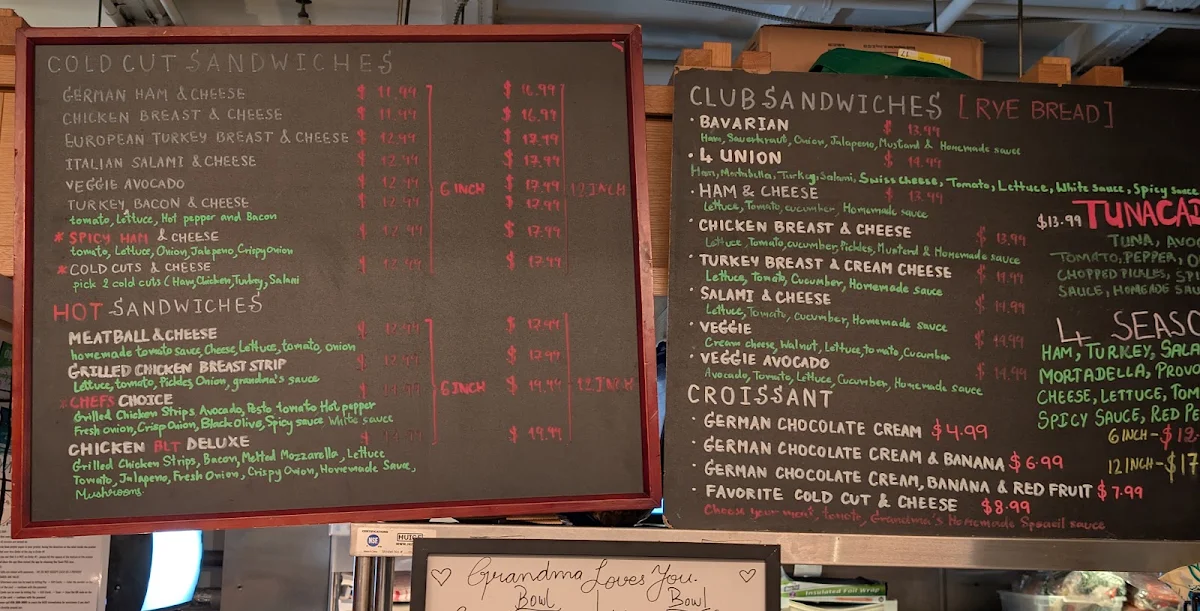 COLD CUT SANDWICHES
GERMAN HAM & CHEESE $ 11.99 $ 16.99
CHICKEN BREAST & CHEESE $ 11.99 $ 16.99
EUROPEAN TURKEY BREAST & CHEESE $ 12.99 $ 17.49
ITALIAN SALAMI & CHEESE $ 12.49 $ 17.49
VEGGIE AVOCADO $ 12.49 $ 17.99
6 INCH 12 INCH
TURKEY, BACON & CHEESE $ 12.49 $ 17.99
tomato, Lettuce, Hot pepper and Bacon
* SPICY HAM & CHEESE $ 12.99 $ 17.99
tomato, Lettuce, Onion, Jalapeno, Crispy onion
* COLD CUTS & CHEESE $ 12.99 $ 17.99
pick 2 cold cuts (Ham, Chicken, Turkey, Salami
HOT SANDWICHES
MEATBALL & CHEESE $ 12.99 $ 17.99
homemade tomato sauce, Cheese, Lettuce, tomato, onion
GRILLED CHICKEN BREAST STRIP $ 12.99 $ 17.99
Lettuce, tomato, Pickles, Onion, grandma's sauce
6 INCH 12 INCH
* CHEFS CHOICE $ $ 19.99
Grilled Chicken Strips Avocado, Pesto tomato Hot pepper
Fresh onion, Crisp Onion, Black Olive, Spicy sauce White sauce
CHICKEN BLT DELUXE $ $ 19.99
Grilled Chicken Strips, Bacon, Melted Mozzarella, Lettuce
Tomato, Jalapeno, Fresh Onion, Crispy Onion, Homemade Sauce,
Mushrooms.
CLUB SANDWICHES [RYE BREAD]
· BAVARIAN $ 13.99
Ham, Sauerkraut, Onion, Jalapeno, Mustard & Homemade sauce
· 4 UNION $ 14.99
Ham, Mortabella, Turkey, Salami, Swiss cheese, Tomato, Lettuce, White sauce, Spicy sauce
· HAM & CHEESE $ 13.99
Lettuce, Tomato, cucumber, Homemade sauce
· CHICKEN BREAST & CHEESE $ 13.99
Lettuce, Tomato, cucumber, Pickles, Mustard & Homemade sauce
· TURKEY BREAST & CREAM CHEESE $ 14.99
Lettuce, Tomato, Cucumber, Homemade sauce
· SALAMI & CHEESE $ 14.99
Lettuce, Tomato, cucumber, Homemade sauce
· VEGGIE $ 14.99
Cream cheese, Walnut, Lettuce, tomato, Cucumber
· VEGGIE AVOCADO $ 14.99
Avocado, Tomato, Lettuce, Cucumber, Homemade sauce
CROISSANT
· GERMAN CHOCOLATE CREAM $4.99
· GERMAN CHOCOLATE CREAM & BANANA $6.99
· GERMAN CHOCOLATE CREAM, BANANA & RED FRUIT $7.99
· FAVORITE COLD CUT & CHEESE $8.99
Choose your meat, tomato, Grandma's Homemade Speacil sauce
$13.99 TUNACA
TUNA, AVO
TOMATO, PEPPER, O
CHOPPED PICKLES, SP
SAUCE, HOMEADE SAU
4 SEASO
HAM, TURKEY, SALA
MORTADELLA, PROVO
CHEESE, LETTUCE, TOM
SPICY SAUCE, RED P
6 INCH - $12.
12 INCH - $17
NSF
Grandma Loves You.
Bowl Bowl
Insulated Foil Wrap